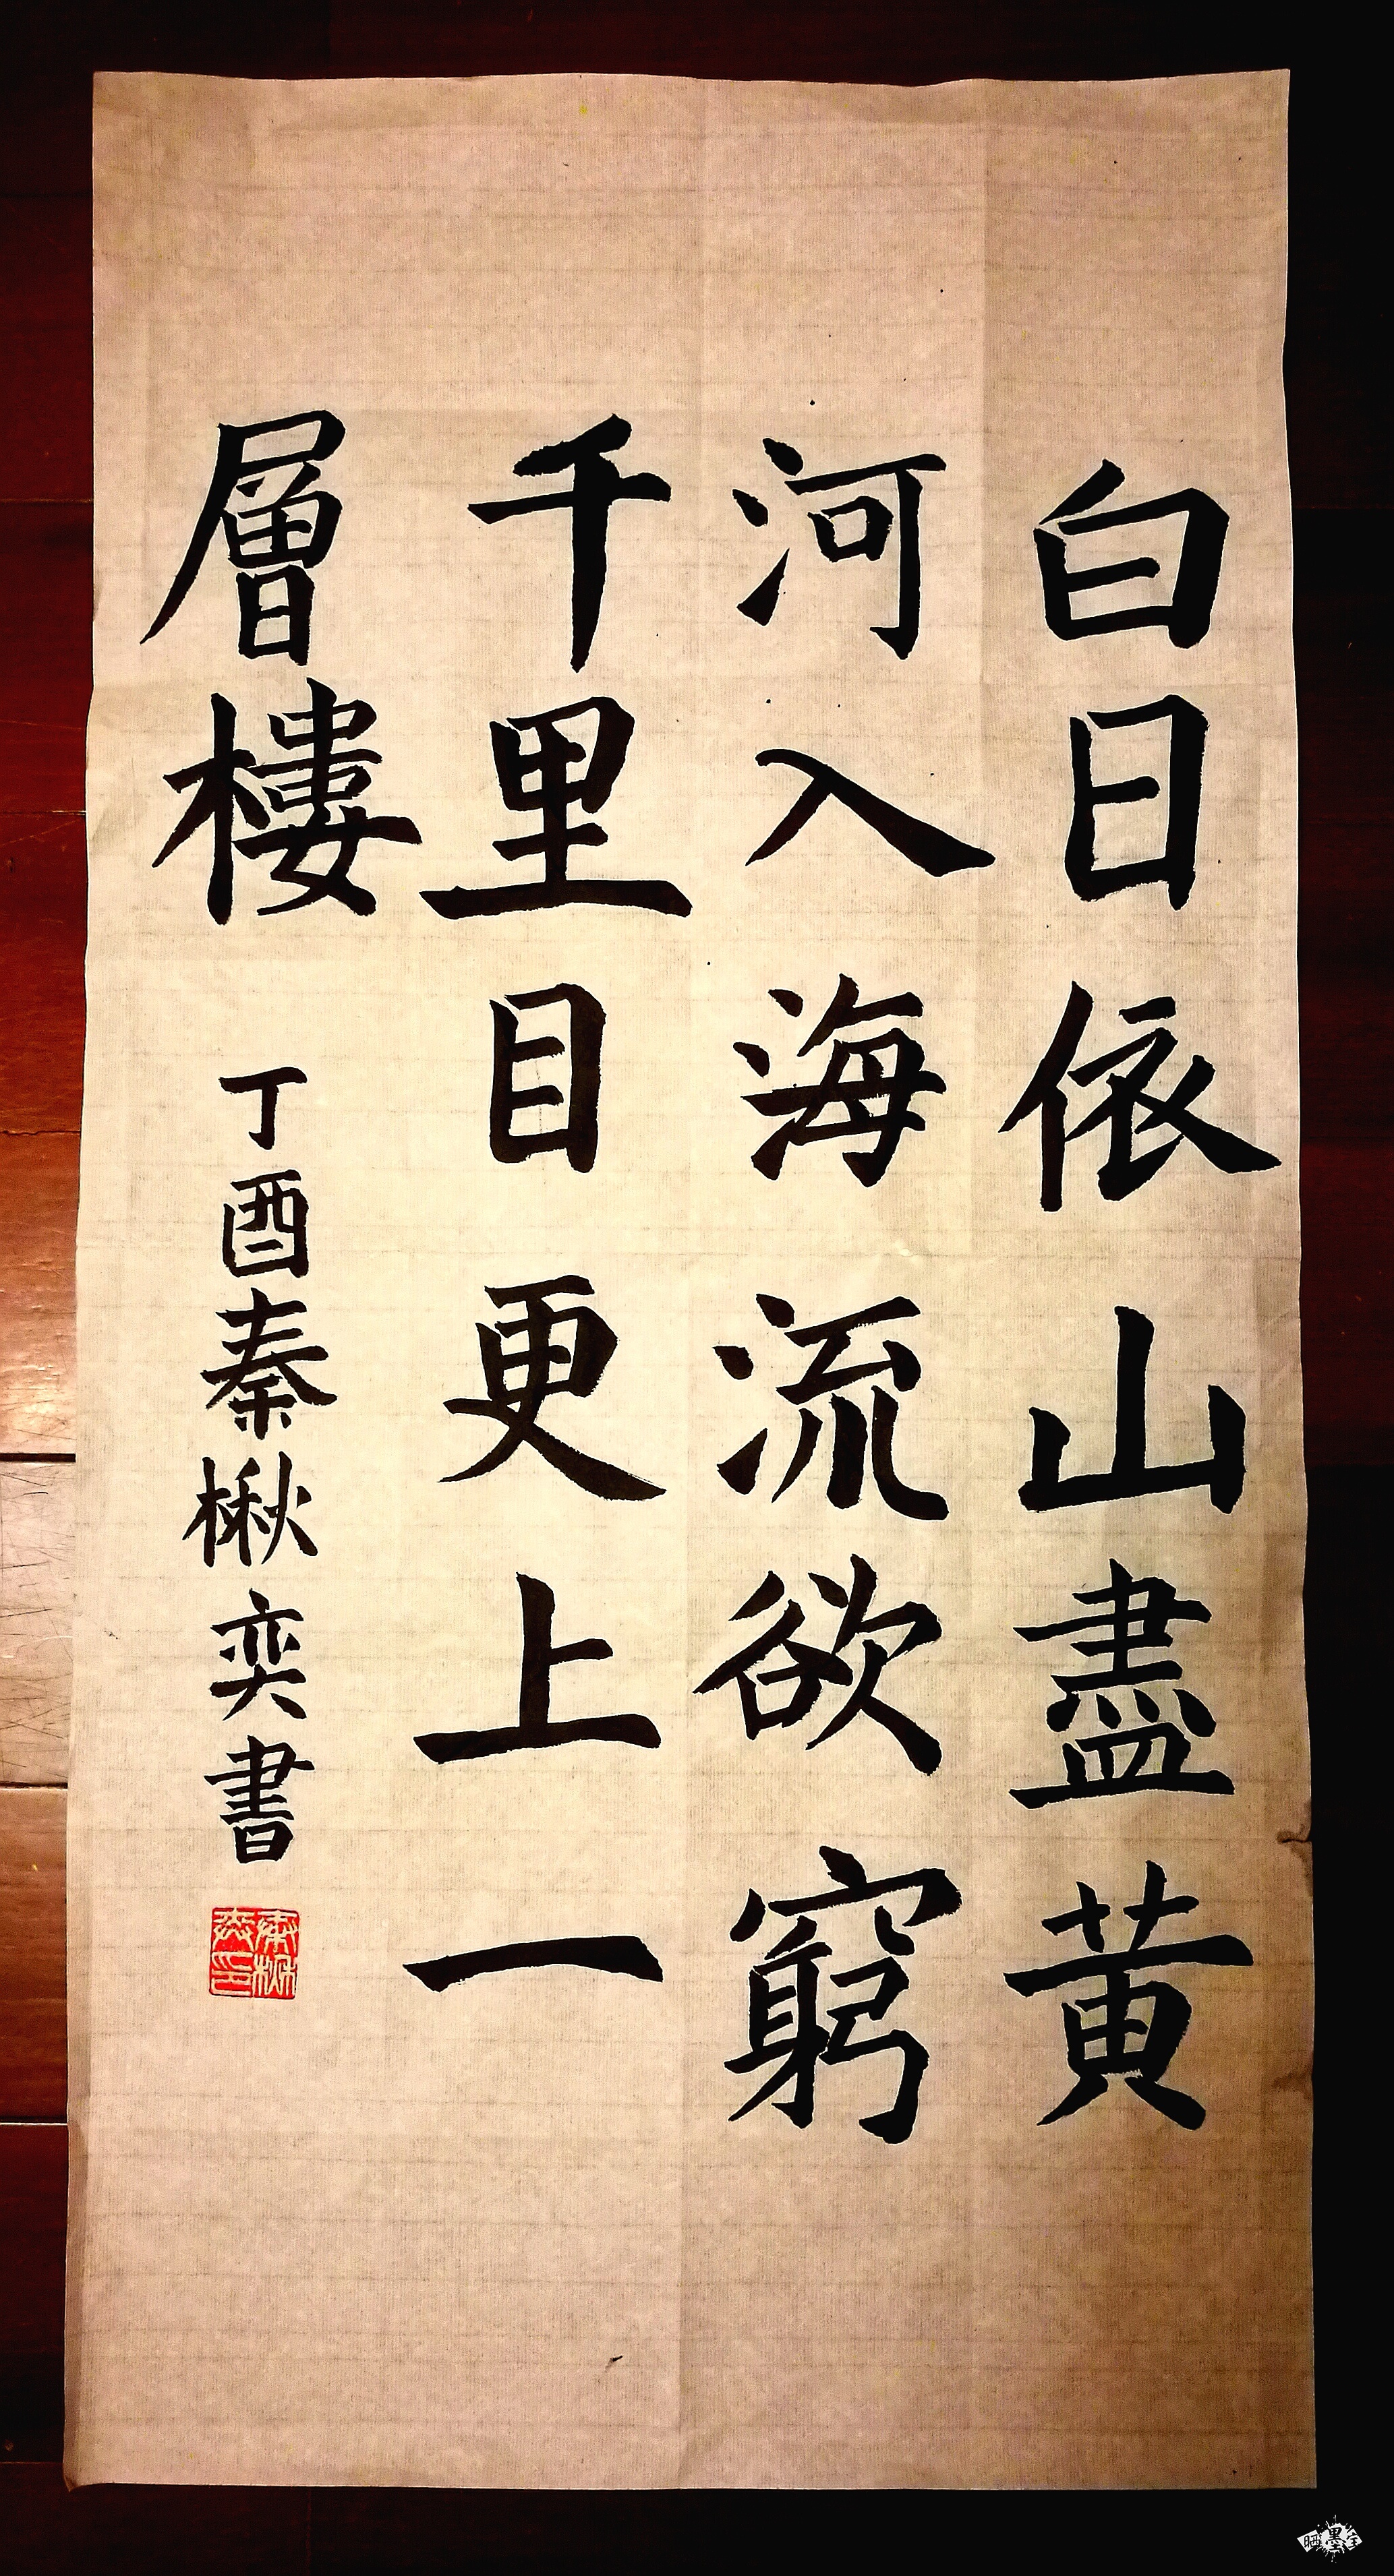 白日依山盡黄
河入海流欲窮
千里目更上一
層樓
丁酉秦楸奕書
秦楸奕印
晒墨宝